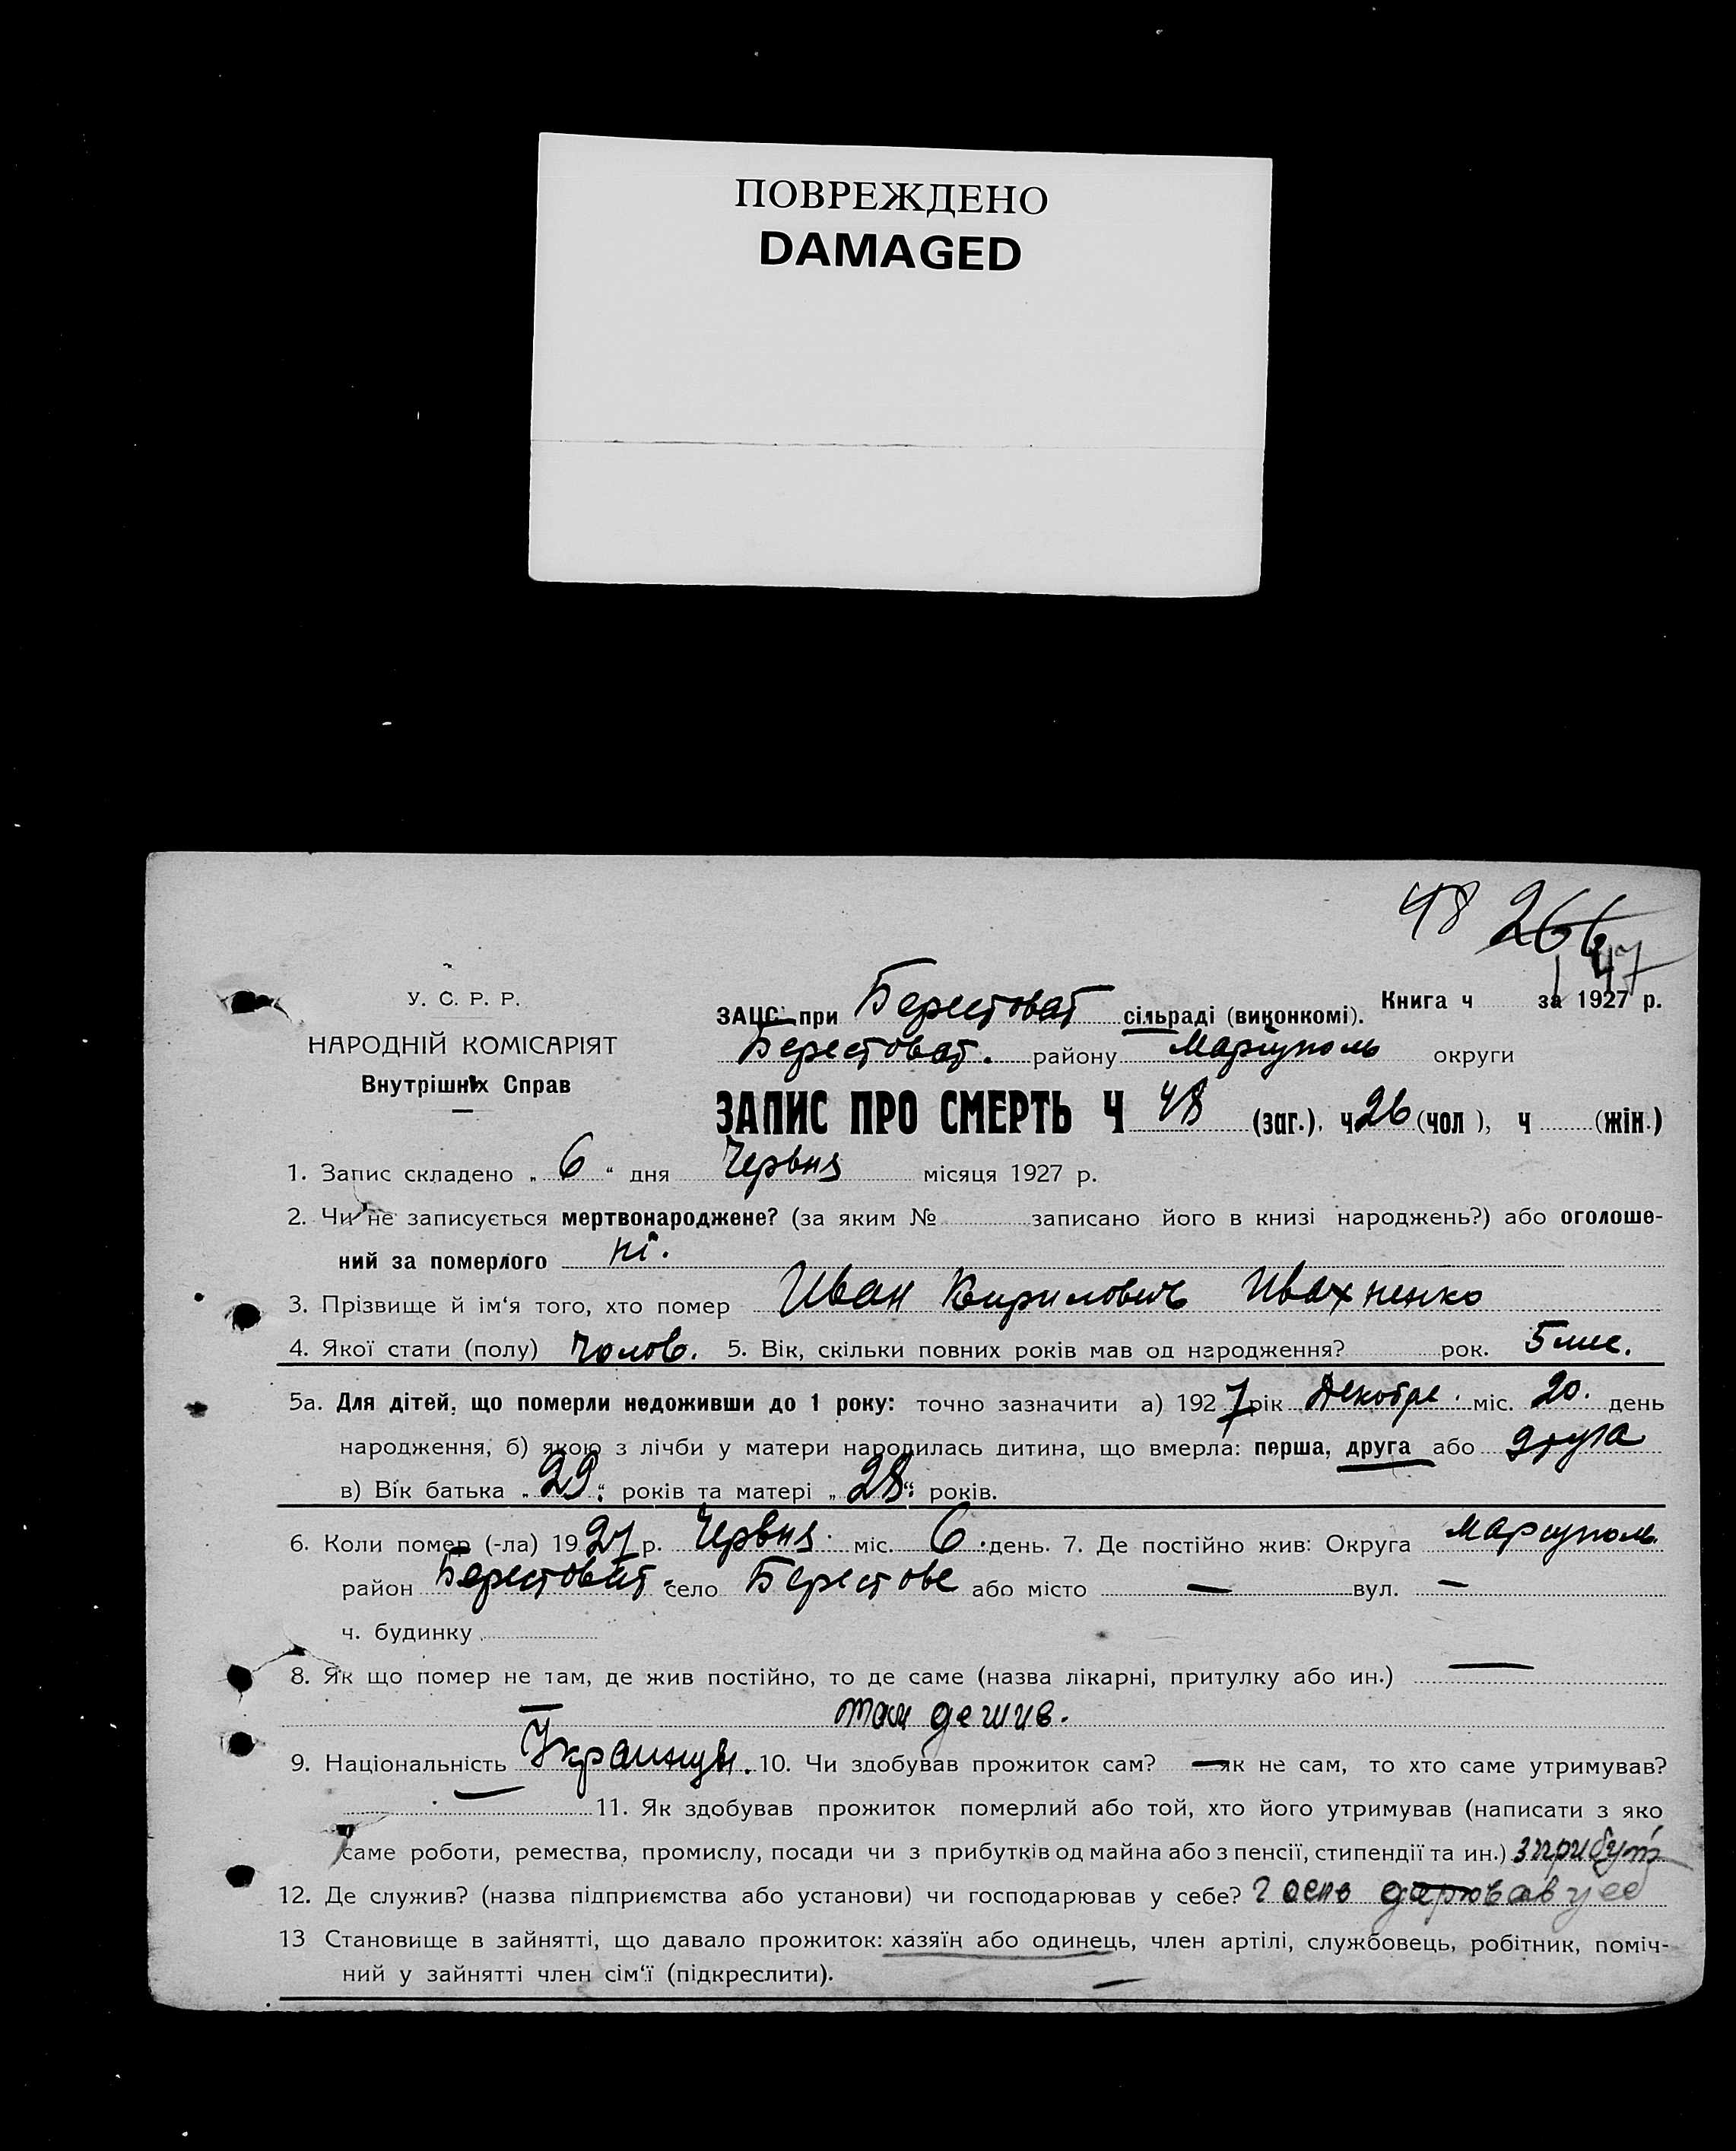 ПОВРЕЖДЕНО
DAMAGED
48 266
147
У. С. Р. Р.
НАРОДНІЙ КОМІСАРІЯТ
Внутрішніх Справ
ЗАЦС при Берестоват сільраді (виконкомі). Книга ч за 1927 р.
Берестоват. району Маріуполь округи
ЗАПИС ПРО СМЕРТЬ Ч 48 (заг.), ч 26 (чол), ч (жін.)
1. Запис складено „ 6 “ дня Червня місяця 1927 р.
2. Чи не записується мертвонароджене? (за яким № записано його в книзі народжень?) або оголоше-
ний за померлого ні.
3. Прізвище й ім'я того, хто помер Иван Кирилович Ивахненко
4. Якої стати (полу) Чолов. 5. Вік, скільки повних років мав од народження? рок. 5 міс.
5а. Для дітей, що померли недоживши до 1 року: точно зазначити а) 1927 рік Декабре. міс. 20. день
народження, б) якою з лічби у матери народилась дитина, що вмерла: перша, друга або друга
в) Вік батька „ 29 “ років та матері „ 28 “ років.
6. Коли помер (-ла) 1927 р. Червня. міс. 6. день. 7. Де постійно жив: Округа Маріуполь
район Берестоват. село Берестове або місто — вул. —
ч. будинку
8. Як що помер не там, де жив постійно, то де саме (назва лікарні, притулку або ин.) —
там де жив.
9. Національність Украинци. 10. Чи здобував прожиток сам? — як не сам, то хто саме утримував?
— 11. Як здобував прожиток померлий або той, хто його утримував (написати з яко
саме роботи, ремества, промислу, посади чи з прибутків од майна або з пенсії, стипендії та ин.) з прибут
12. Де служив? (назва підприємства або установи) чи господарював у себе? Госпо дарював у себ
13 Становище в зайнятті, що давало прожиток: хазяїн або одинець, член артілі, службовець, робітник, поміч-
ний у зайнятті член сім'ї (підкреслити). —